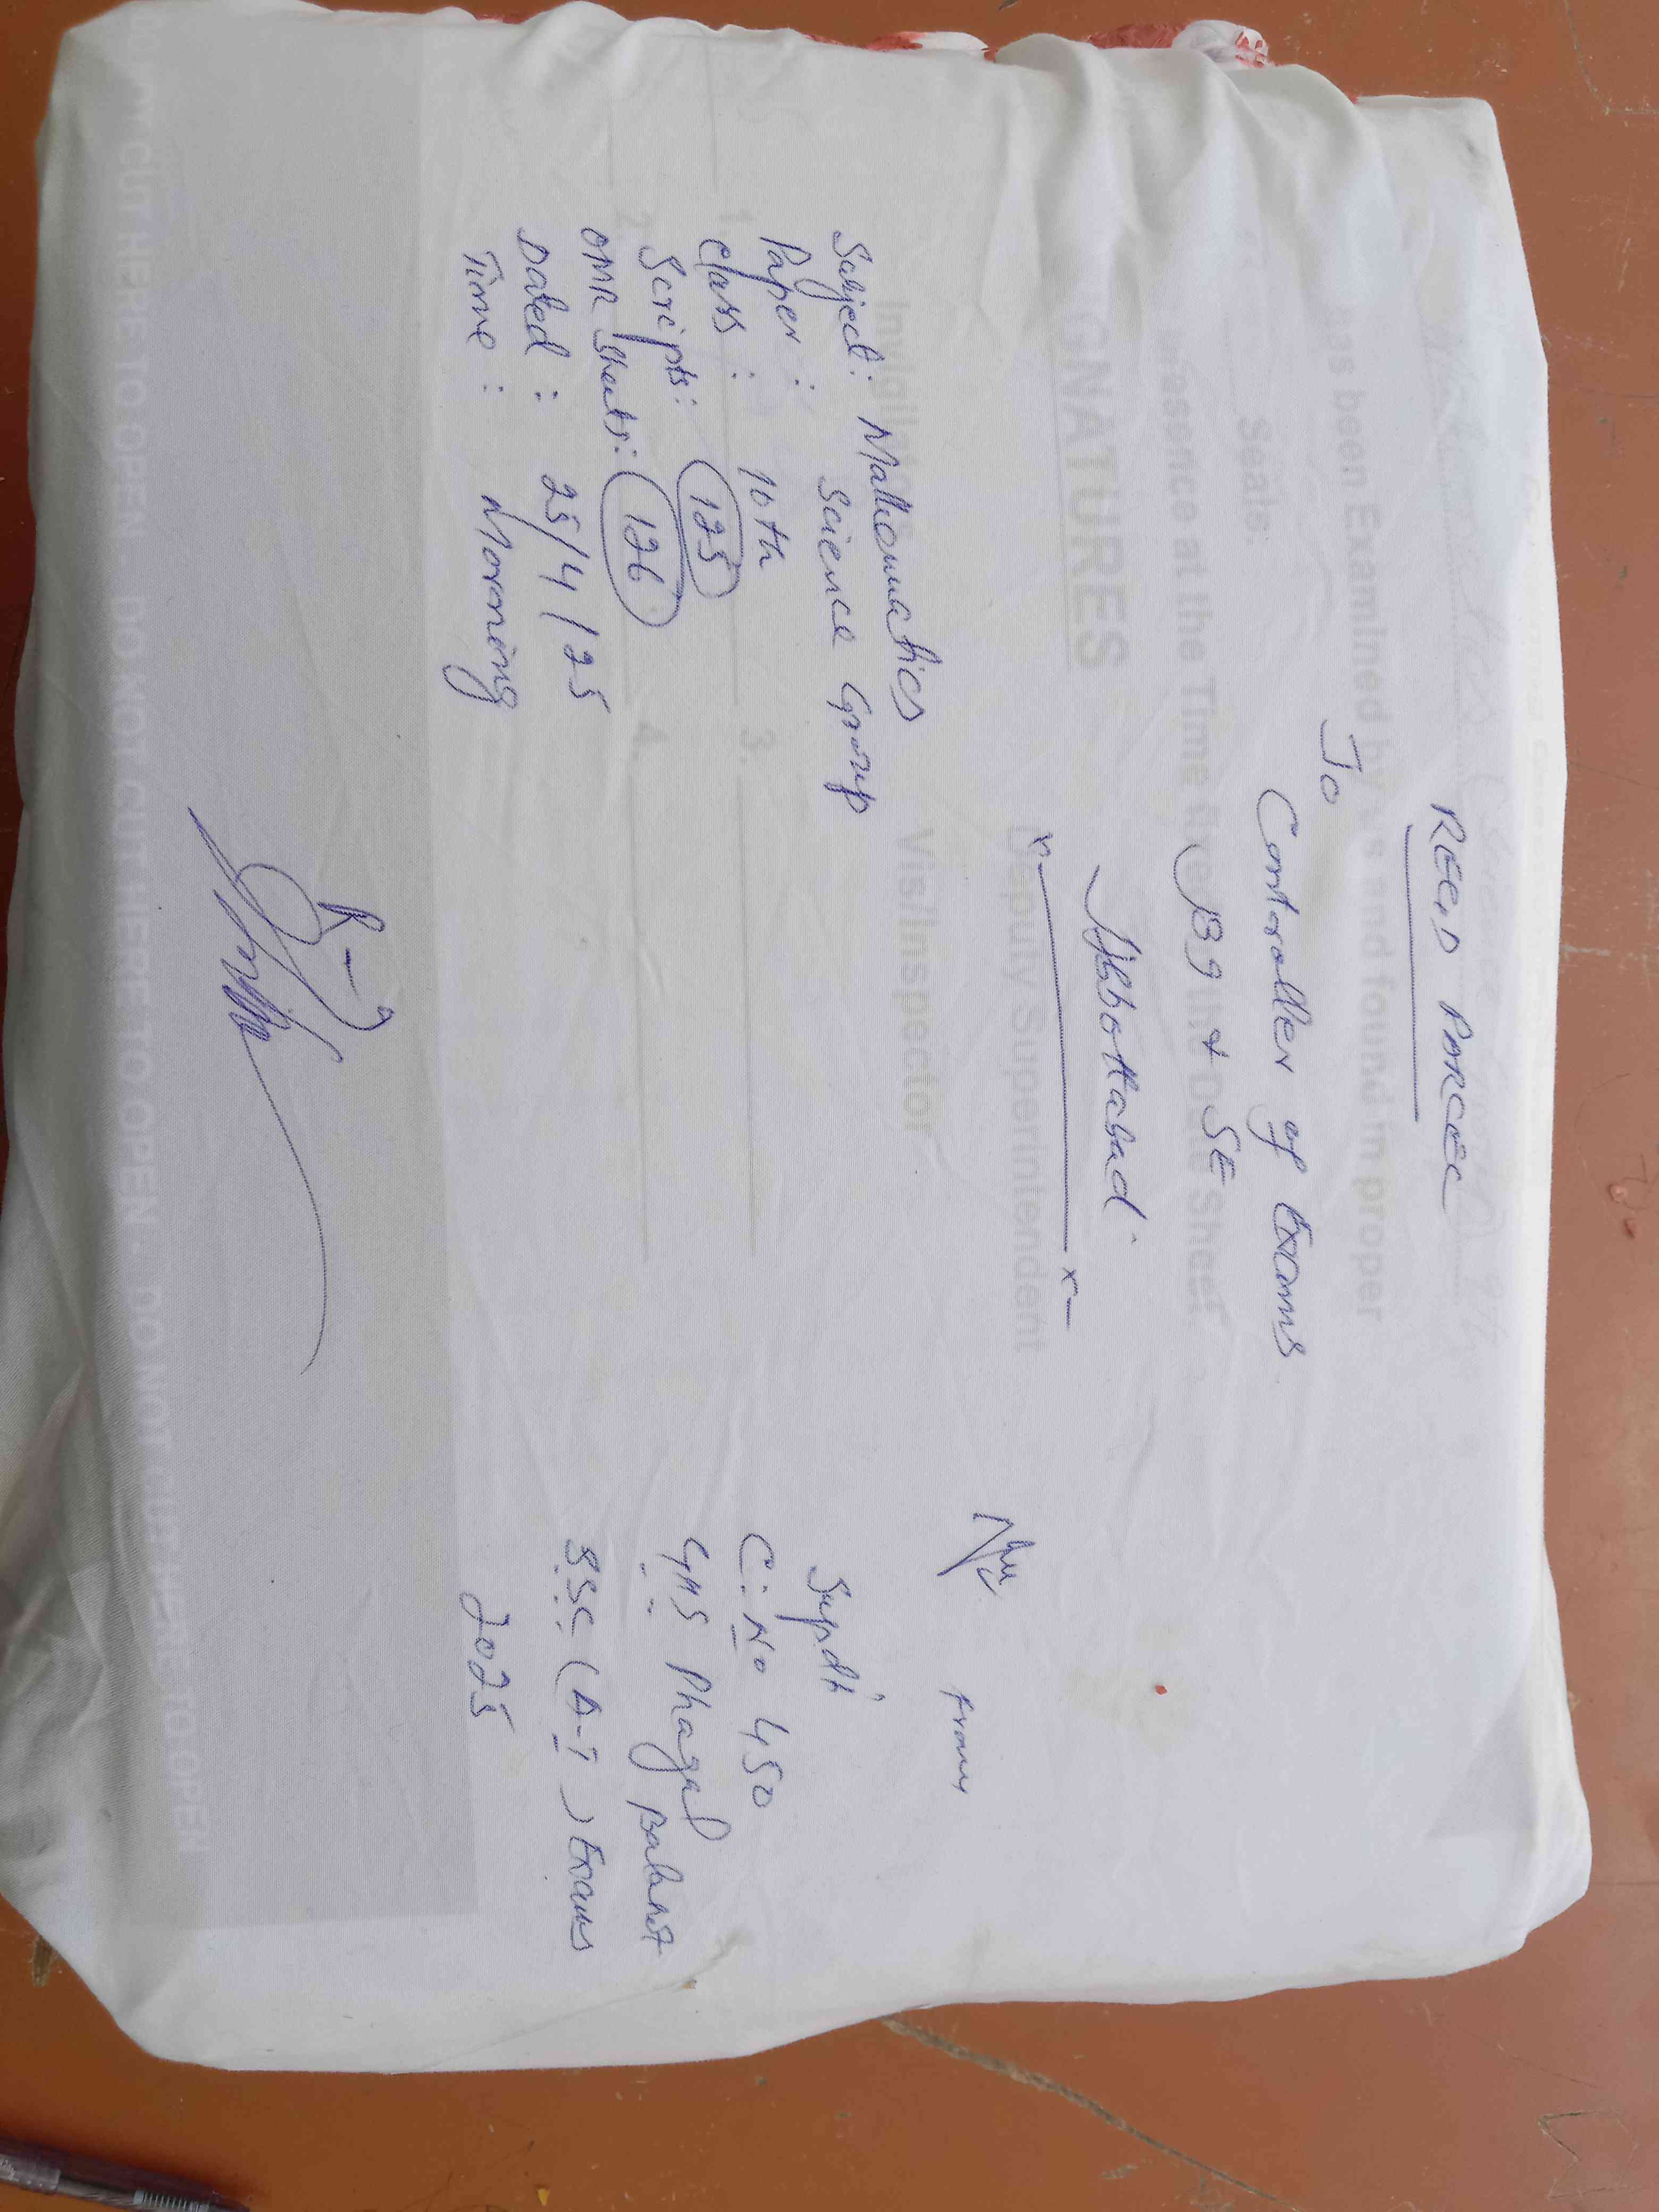 REGD PARCEL
To
Controller of Exams
BI & SE
Abbottabad
x x
Subject: Mathematics
Paper : Science Group
Class : 10th
Scripts: 125
OMR Sheets: 126
Dated : 25/4/25
Time : Morning
From
Supdt
C. No 450
GHS Phagal Balakot
SSC (A-I) Exams
2025
has been Examined by us and found in proper
Seals.
SIGNATURES
Deputy Superintendent
Vis/Inspector
1.
2.
3.
4.
CUT HERE TO OPEN DO NOT CUT HERE TO OPEN DO NOT CUT HERE TO OPEN